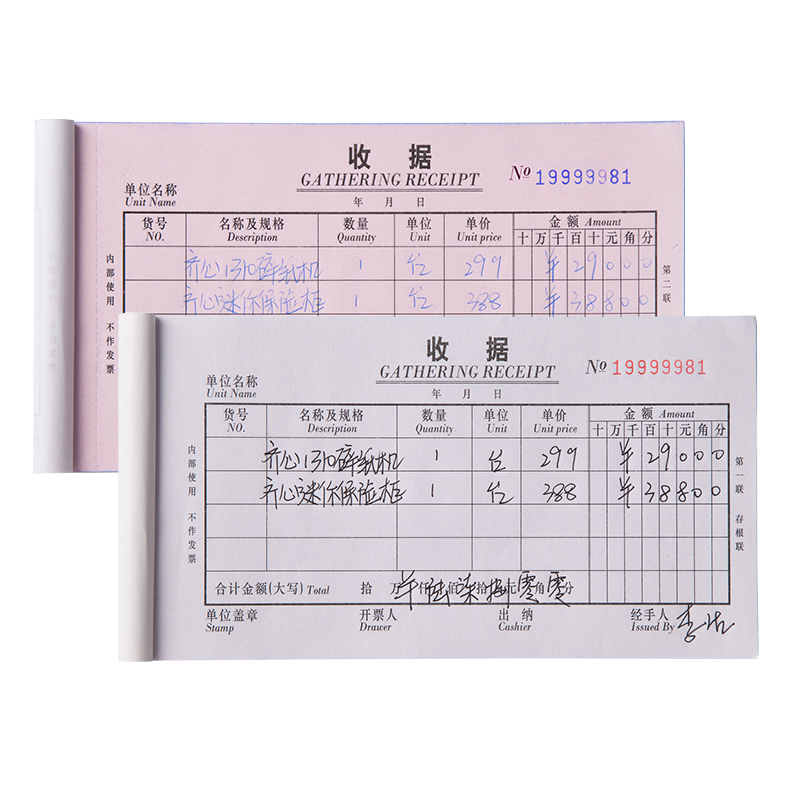 收 据
GATHERING RECEIPT
No 19999981
单位名称
Unit Name
年 月 日
货号 名称及规格 数量 单位 单价 金 额 Amount
NO. Description Quantity Unit Unit price 十 万 千 百 十 元 角 分
齐心 碎纸机 1 台 299 ¥ 2 9 0 0 0
齐心迷你保险柜 1 台 388 ¥ 3 8 8 0 0
内部使用 不作发票
第二联
收 据
GATHERING RECEIPT
No 19999981
单位名称
Unit Name
年 月 日
货号 名称及规格 数量 单位 单价 金 额 Amount
NO. Description Quantity Unit Unit price 十 万 千 百 十 元 角 分
齐心 碎纸机 1 台 299 ¥ 2 9 0 0 0
齐心迷你保险柜 1 台 388 ¥ 3 8 8 0 0
内部使用 不作发票
第一联 存根联
合计金额(大写) Total 拾 万 ¥ 仟 陆 佰 柒 拾 捌 元 零 角 零 分
单位盖章 开票人 出 纳 经手人
Stamp Drawer Cashier Issued By 李